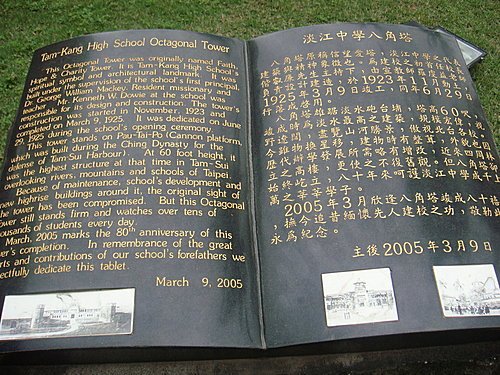 Tam-Kang High School Octagonal Tower
This Octagonal Tower was originally named Faith,
Hope & Charity Tower. It is Tam-Kang High School's
spiritual symbol and architectural landmark. It was
built under the supervision of the school's first principal,
Dr. George William Mackay. Resident missionary
teacher, Mr. Kenneth W. Dowie at the school was
responsible for its design and construction. The tower's
construction began in November, 1923 and
completed on March 9, 1925. It was dedicated on June
29, 1925 during the school's opening ceremony.
This tower stands on Pau-Tai-Po (Cannon platform,
which was built during the Ching Dynasty for the
defense of Tam-Sui Harbour). At 60 foot height, it
was the highest structure at that time in Tam-Sui
overlooking rivers, mountains and schools of Taipei.
Because of maintenance, school's development and
new highrise buildings around it, the original sight of
the tower has been compromised. But this Octagonal
Tower still stands firm and watches over tens of
thousands of students every day.
March, 2005 marks the 80th anniversary of this
wer's completion. In remembrance of the great
rts and contributions of our school's forefathers we
ectfully dedicate this tablet.
March 9, 2005
淡江中學八角塔
八角塔原稱信望愛塔,淡江中學之
建築與精神象徵也。為建校之初首任校長
偕叡廉先生主持下,由宣教師
設計監造。始於1923年11月
1925年3月9日竣工,同年6月29
行落成啟用。
八角塔雄踞淡水砲台埔,塔高60呎,
竣成時為淡水最高之建築,規模宏偉,視
野遼闊,盡覽山河勝景,
今雖物換星移,建物時有整
歷代辦學發展所需
立之高樓,
始終屹立,八十年來呵護淡江中學
萬之莘莘學子。
2005年3月欣逢八角塔竣成八十
,撫今追昔緬懷先人建校之功,敬勒
永為紀念。
主後2005年3月9日